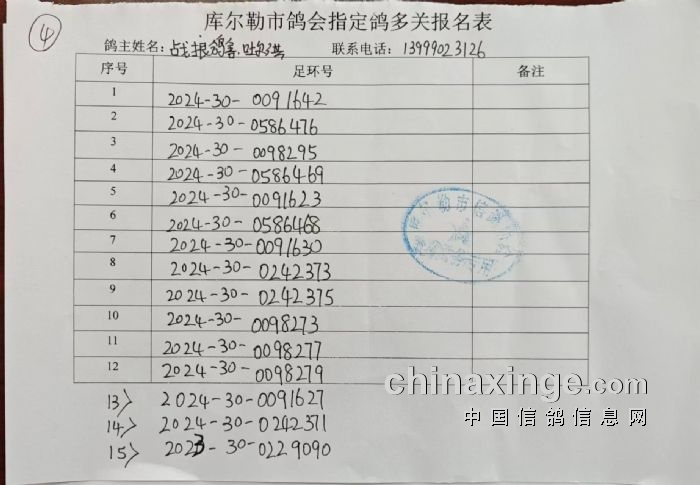 ④
库尔勒市鸽会指定鸽多关报名表
鸽主姓名：战狼鸽舍 联系电话：13999023126
序号 足环号 备注
1 2024-30-0091642
2 2024-30-0586476
3 2024-30-0098295
4 2024-30-0586469
5 2024-30-0091623
6 2024-30-0586468
7 2024-30-0091630
8 2024-30-0242373
9 2024-30-0242375
10 2024-30-0098273
11 2024-30-0098277
12 2024-30-0098279
13> 2024-30-0091627
14> 2024-30-0242371
15> 2023-30-0229090
chinaxinge.com
中国信鸽信息网